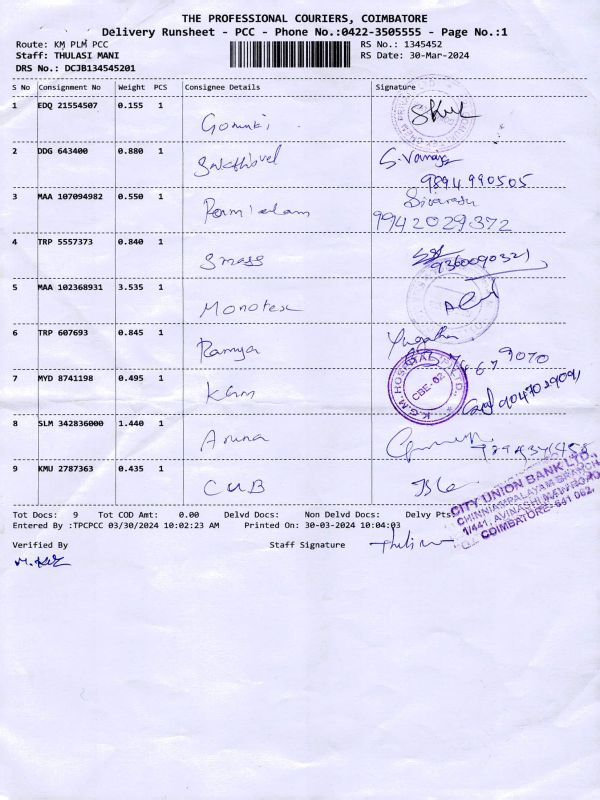 THE PROFESSIONAL COURIERS, COIMBATORE
Delivery Runsheet - PCC - Phone No.:0422-3505555 - Page No.:1
Route: KM PLM PCC
RS No.: 1345452
Staff: THULASI MANI
RS Date: 30-Mar-2024
DRS No.: DCJB134545201
S No Consignment No Weight PCS Consignee Details Signature
1 EDQ 21554507 0.155 1
2 DDG 643400 0.880 1 Sakthivel
9894990505
3 MAA 107094982 0.550 1
9942029372
4 TRP 5557373 0.840 1 Smass 9360090321
5 MAA 102368931 3.535 1 Monotex
6 TRP 607693 0.845 1 Ramya
7 MYD 8741198 0.495 1 KGM
K.G.M. HOSPITAL
CBE-02
9047029091
8 SLM 342836000 1.440 1 Aruna
9 KMU 2787363 0.435 1 CUB
CITY UNION BANK LTD.,
CHINNIAMPALAYAM BRANCH
1/441, AVINASHI
COIMBATORE-641 062.
Tot Docs: 9 Tot COD Amt: 0.00 Delvd Docs: Non Delvd Docs: Delvy Pts
Entered By :TPCPCC 03/30/2024 10:02:23 AM Printed On: 30-03-2024 10:04:03
Verified By Staff Signature